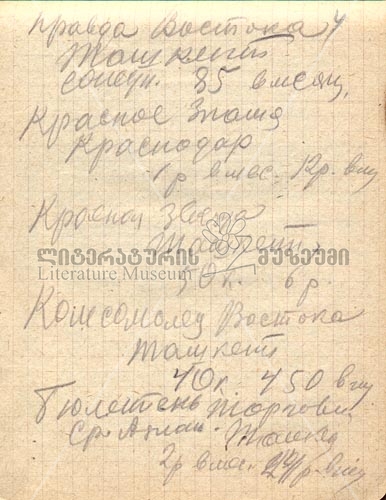 Правда Востока
Ташкент
85 в месяц.
Красное Знамя
Краснодар
1 р в мес. 12р. в год
Красная Звезда
Ташкент
ლიტერატურის მუზეუმი
Literature Museum
50 к. 6 р.
Комсомолец Востока
Ташкент
40к 4 50 в год
Бюлетень Торговли
Ср. Азиат. Ташкент
2р в мес. 24 р. в год